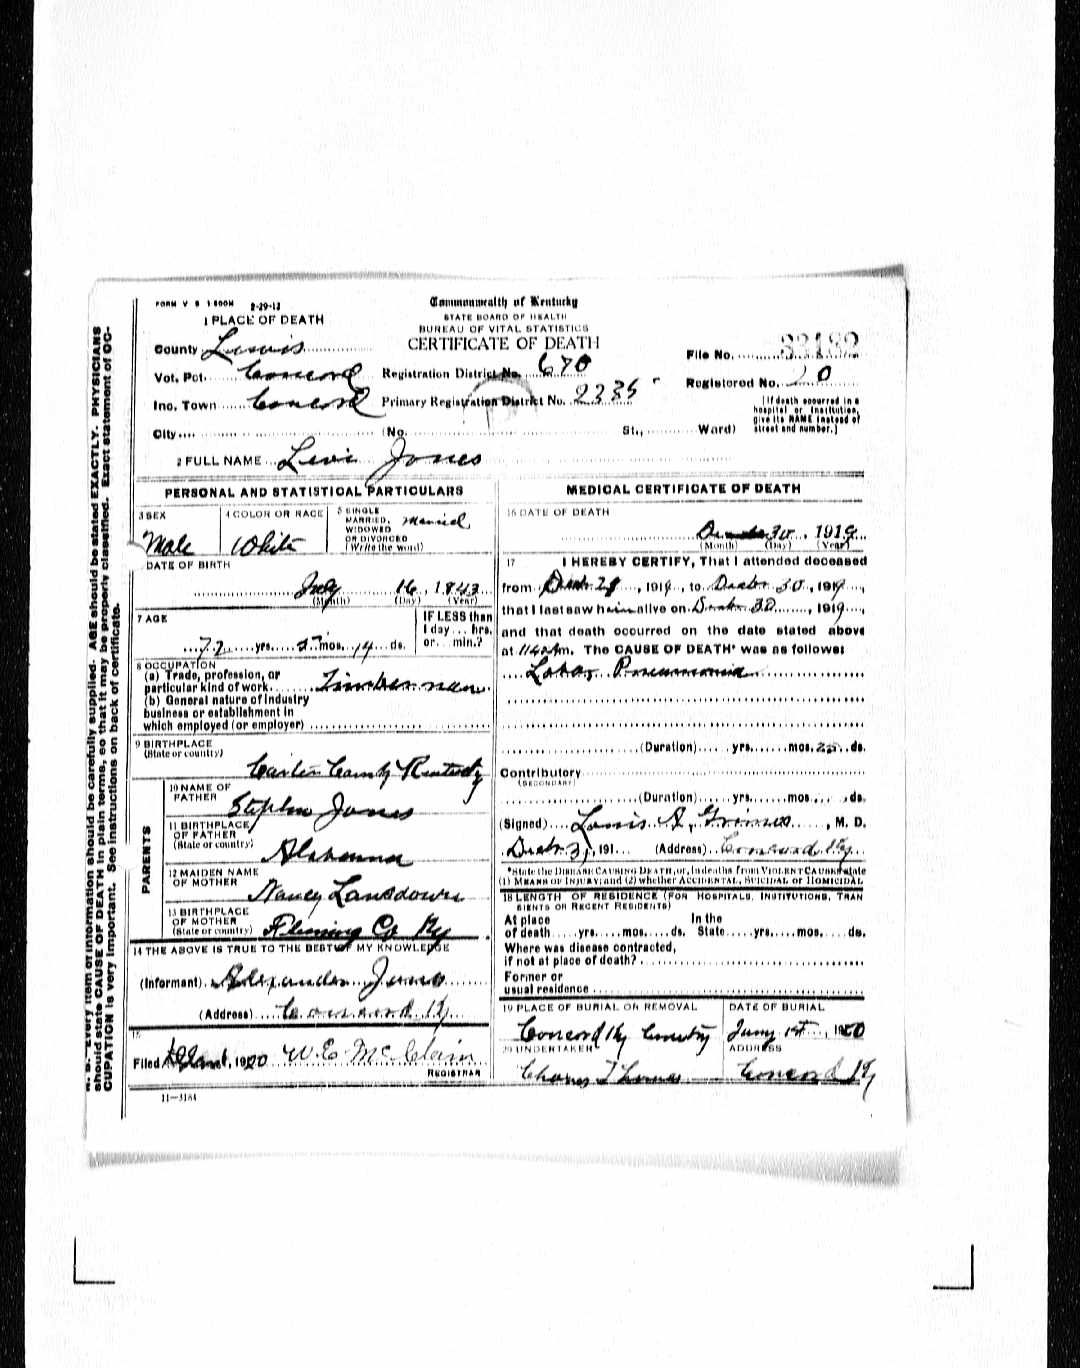 FORM V S 1 500M 2-29-12
Commonwealth of Kentucky
STATE BOARD OF HEALTH
BUREAU OF VITAL STATISTICS
CERTIFICATE OF DEATH
1 PLACE OF DEATH
County Lewis
Vot. Pct. Concord
Inc. Town Concord
City (No. St., Ward)
Registration District No. 670
Primary Registration District No. 2335
File No.
Registered No. 20
[If death occurred in a
hospital or institution,
give its NAME instead of
street and number.]
2 FULL NAME Levi Jones
PERSONAL AND STATISTICAL PARTICULARS
3 SEX
Male
4 COLOR OR RACE
White
5 SINGLE
MARRIED,
WIDOWED
OR DIVORCED
(Write the word)
Married
DATE OF BIRTH
July 16, 1843
(Month) (Day) (Year)
7 AGE
yrs. 5 mos. 14 ds.
IF LESS than
1 day... hrs.
or... min.?
8 OCCUPATION
(a) Trade, profession, or
particular kind of work Timber man
(b) General nature of industry
business or establishment in
which employed (or employer)
9 BIRTHPLACE
(State or country)
Carter County Kentucky
PARENTS
10 NAME OF
FATHER
Stephen Jones
11 BIRTHPLACE
OF FATHER
(State or country)
Alabama
12 MAIDEN NAME
OF MOTHER
Nancy Lansdown
13 BIRTHPLACE
OF MOTHER
(State or country)
Fleming Co Ky
14 THE ABOVE IS TRUE TO THE BEST OF MY KNOWLEDGE
(Informant) Alexander Jones
(Address) Concord Ky
15
Filed 1920 W. E. McClain
REGISTRAR
11-3184
MEDICAL CERTIFICATE OF DEATH
16 DATE OF DEATH
30, 1919
(Month) (Day) (Year)
17 I HEREBY CERTIFY, That I attended deceased
from Decbr 29, 1919, to Decbr 30, 1919,
that I last saw him alive on Decbr 30, 1919,
and that death occurred on the date stated above
at m. The CAUSE OF DEATH* was as follows:
Lobar Pneumonia
(Duration) yrs. mos. ds.
Contributory
(SECONDARY)
(Duration) yrs. mos. ds.
(Signed) Louis A. Grimes, M. D.
Decbr 31, 191 (Address) Concord Ky
*State the DISEASE CAUSING DEATH, or, in deaths from VIOLENT CAUSES state
(1) MEANS OF INJURY; and (2) whether ACCIDENTAL, SUICIDAL or HOMICIDAL
18 LENGTH OF RESIDENCE (FOR HOSPITALS, INSTITUTIONS, TRAN
SIENTS OR RECENT RESIDENTS)
At place In the
of death yrs. mos. ds. State yrs. mos. ds.
Where was disease contracted,
if not at place of death?
Former or
usual residence
19 PLACE OF BURIAL OR REMOVAL
Concord Ky Cemetry
DATE OF BURIAL
1st, 1920
20 UNDERTAKER
Thomas
ADDRESS
Concord Ky
N. B. Every item of information should be carefully supplied. AGE should be stated EXACTLY. PHYSICIANS
should state CAUSE OF DEATH in plain terms, so that it may be properly classified. Exact statement of OC-
CUPATION is very important. See instructions on back of certificate.